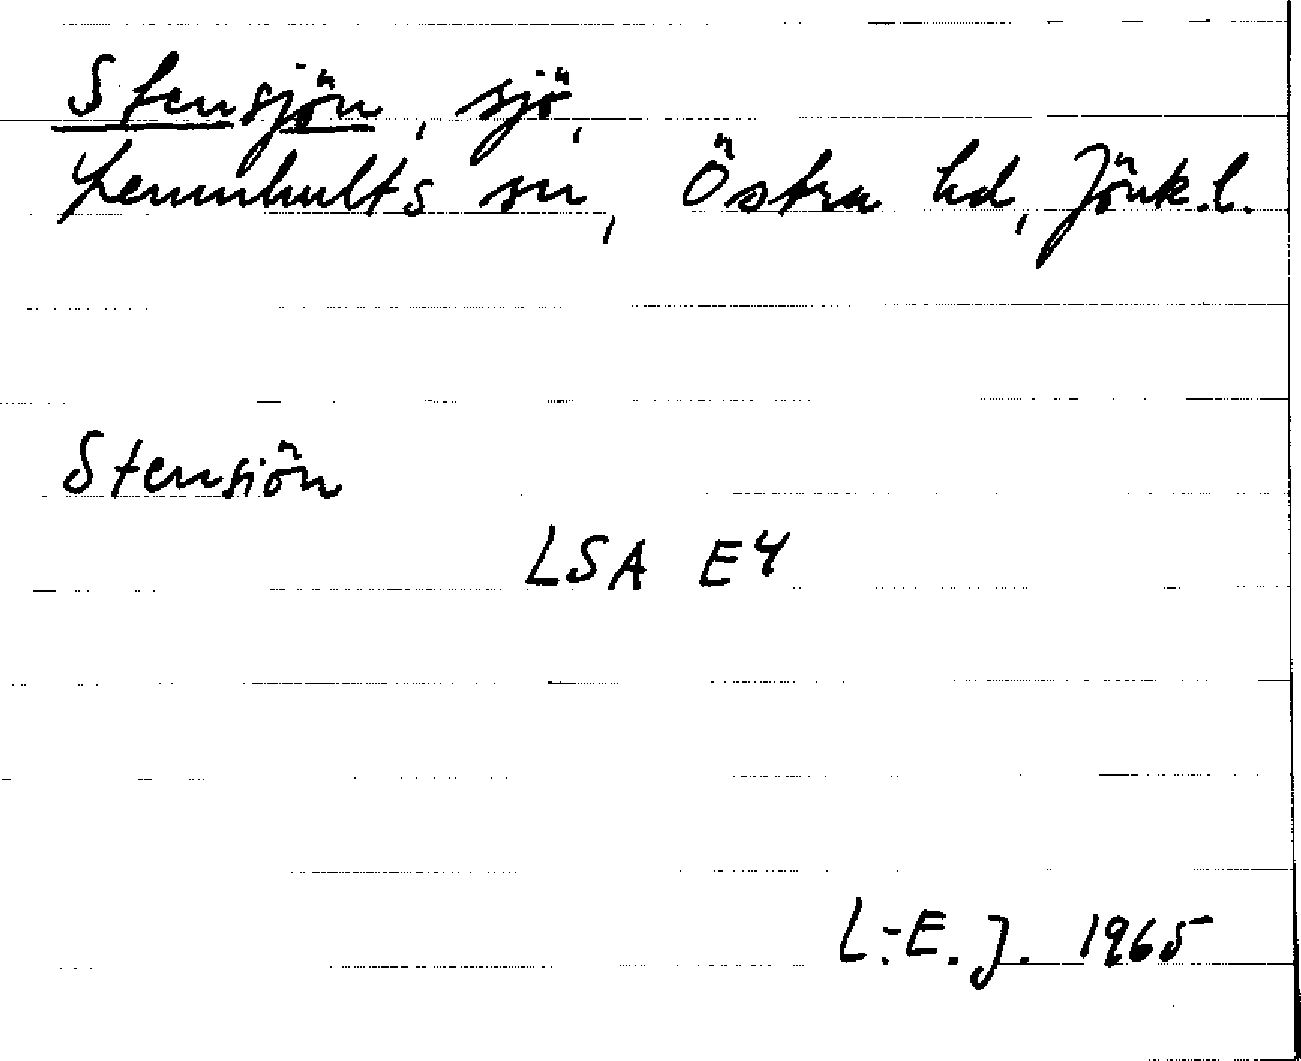 Stensjön, sjö,
Lemnhults sn, Östra hd, Jönk.l.
Stensiön
LSA E4
L.-E. J. 1965